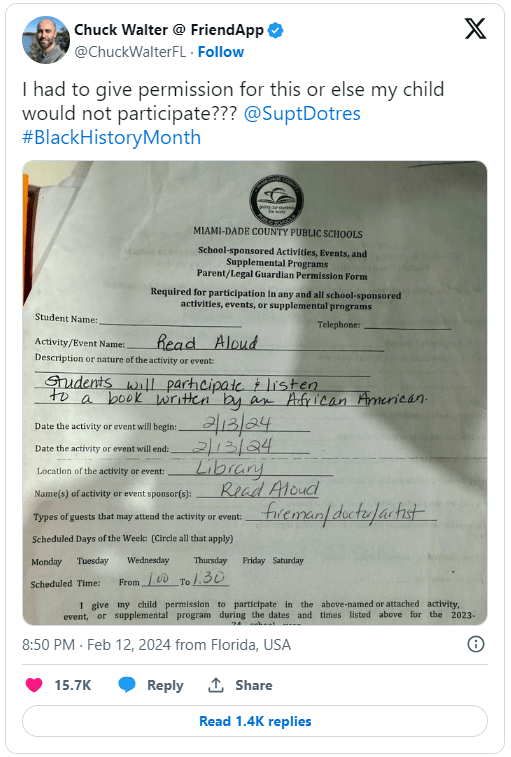 Chuck Walter @ FriendApp
@ChuckWalterFL · Follow
I had to give permission for this or else my child
would not participate??? @SuptDotres
#BlackHistoryMonth
giving our students
the world
PUBLIC SCHOOLS
MIAMI-DADE COUNTY PUBLIC SCHOOLS
School-sponsored Activities, Events, and
Supplemental Programs
Parent/Legal Guardian Permission Form
Required for participation in any and all school-sponsored
activities, events, or supplemental programs
Student Name: Telephone:
Activity/Event Name: Read Aloud
Description or nature of the activity or event:
Students will participate & listen
to a book written by an African American.
Date the activity or event will begin: 2/13/24
Date the activity or event will end: 2/13/24
Location of the activity or event: Library
Name(s) of activity or event sponsor(s): Read Aloud
Types of guests that may attend the activity or event: fireman/doctor/artist
Scheduled Days of the Week: (Circle all that apply)
Monday Tuesday Wednesday Thursday Friday Saturday
Scheduled Time: From 1:00 To 1:30
I give my child permission to participate in the above-named or attached activity,
event, or supplemental program during the dates and times listed above for the 2023-
8:50 PM · Feb 12, 2024 from Florida, USA
15.7K Reply Share
Read 1.4K replies